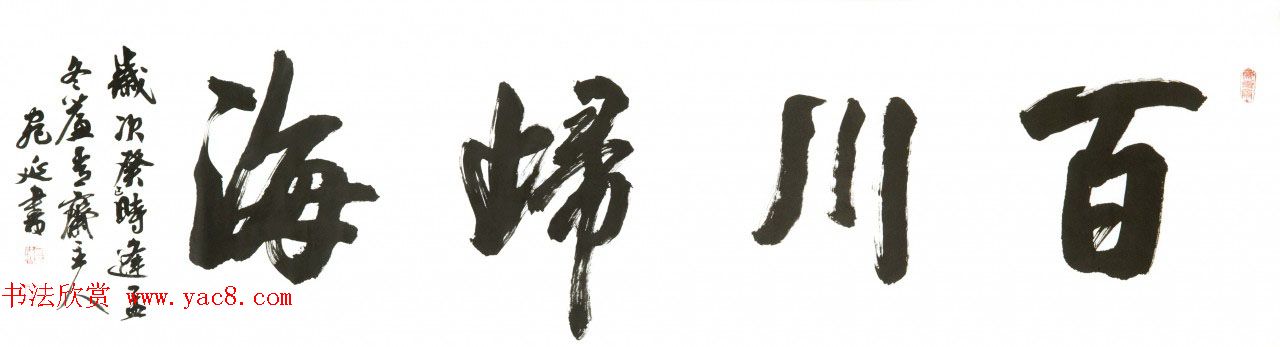 百川歸海
歲次癸巳時逢孟
冬齋主人
延書
书法欣赏 www.yac8.com